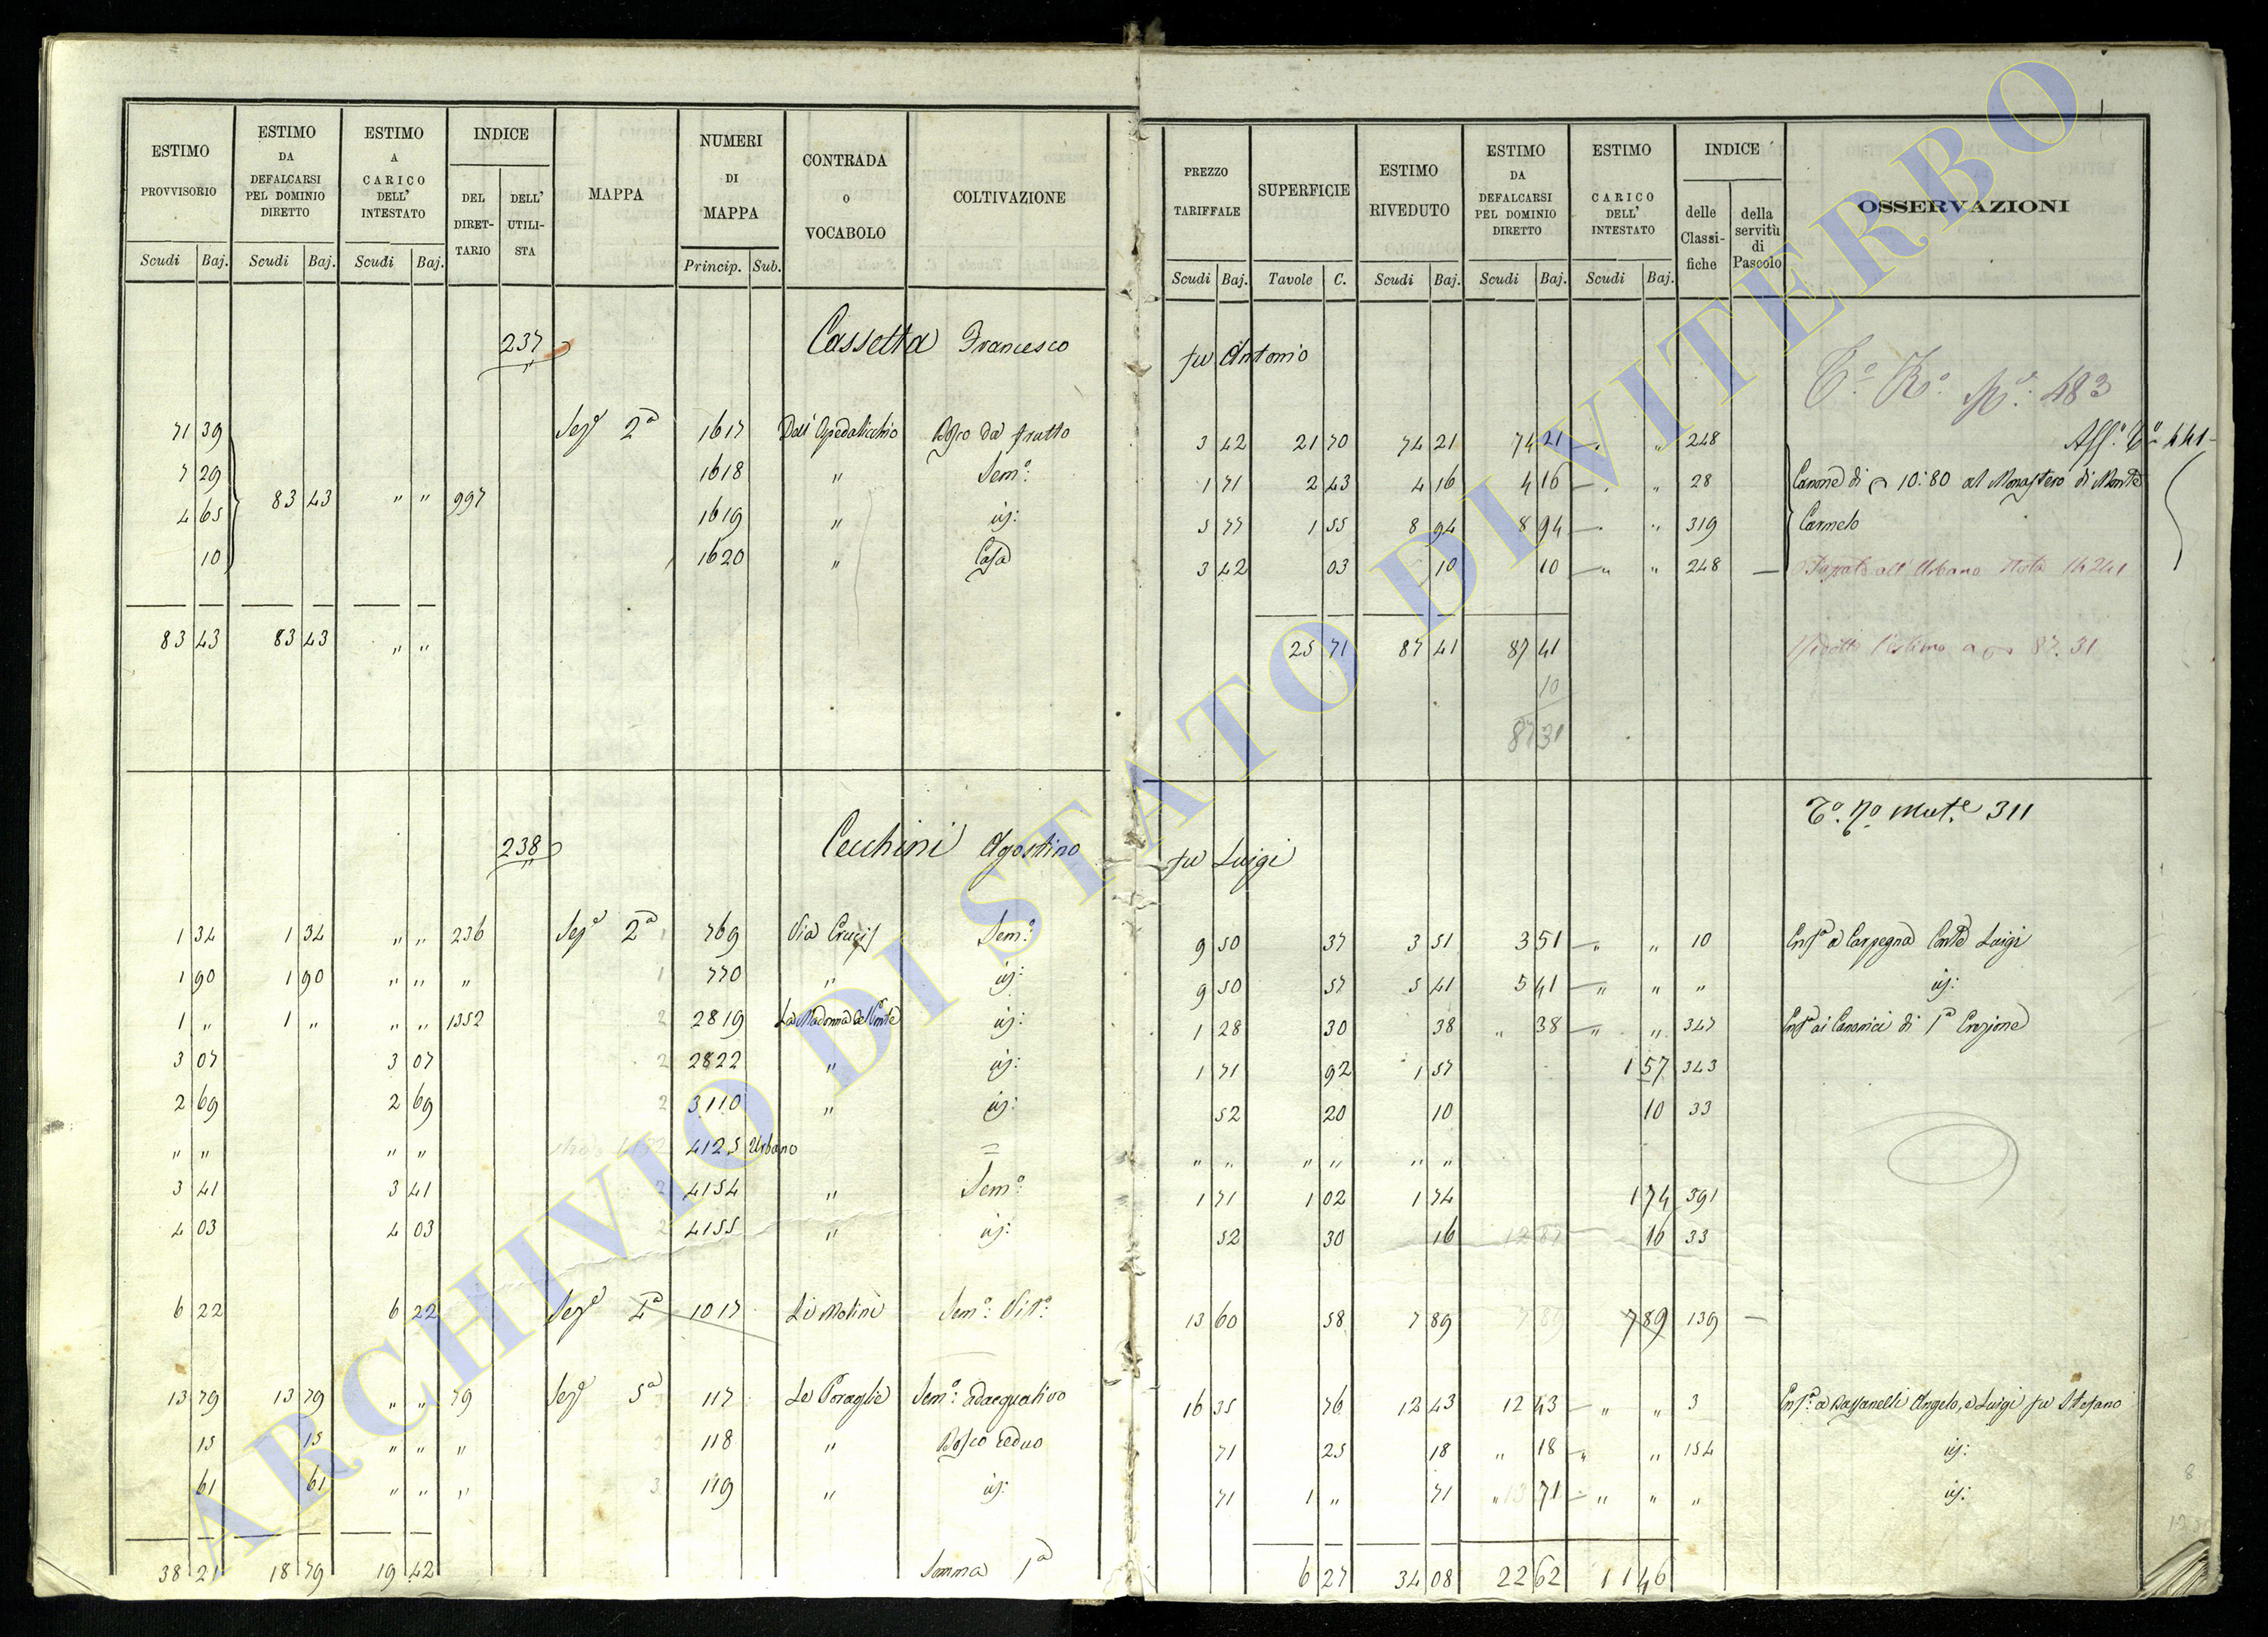 ESTIMO PROVVISORIO | ESTIMO DA DEFALCARSI PEL DOMINIO DIRETTO | ESTIMO A CARICO DELL' INTESTATO | INDICE | MAPPA | NUMERI DI MAPPA | CONTRADA o VOCABOLO | COLTIVAZIONE | PREZZO TARIFFALE | SUPERFICIE | ESTIMO RIVEDUTO | ESTIMO DA DEFALCARSI PEL DOMINIO DIRETTO | ESTIMO CARICO DELL' INTESTATO | INDICE | OSSERVAZIONI
DEL DIRETTARIO | DELL' UTILISTA | delle Classifiche | della servitù di Pascolo
Scudi Baj. | Scudi Baj. | Scudi Baj. | Princip. Sub. | Scudi Baj. | Tavole C. | Scudi Baj. | Scudi Baj. | Scudi Baj.
237 Cassetta Francesco fu Antonio
Nº. 483
71 39 Sezª 2ª 1617 Dell' Ospedalicchio Bosco da frutto 3 42 21 70 74 21 74 21 " " 248 Aff.º 441
7 29 1618 " Semº: 1 71 2 43 4 16 4 16 " " 28 Canone di 10:80 al Monastero di Monte
83 43 " " 997
4 65 1619 " id: 5 77 1 55 8 94 8 94 " " 319 Carmelo
10 1620 " Casa 3 42 03 10 10 " " 248 Passato all' Urbano Nota 14241
83 43 83 43 " " 25 71 87 41 87 41 Ridotto l'estimo a 87.31
10
87 31
Tº. Nº Mutº 311
238 Cecchini Agostino fu Luigi
1 34 1 34 " " 236 Sezª 2ª 1 769 Via Crucis Semº: 9 50 37 3 51 3 51 " " 10 Enfª a Carpegna Conte Luigi
1 90 1 90 " " " 1 770 " id: 9 50 57 5 41 5 41 " " " id:
1 " 1 " " " 1352 2 2819 La Madonna del Ponte id: 1 28 30 38 " 38 " " 347 Enfª ai Canonici di 1ª Erezione
3 07 3 07 2 2822 " id: 1 71 92 1 57 1 57 343
2 69 2 69 2 3110 " id: 52 20 10 10 33
" " " " 4125 Urbano = " " " " " "
3 41 3 41 2 4154 " Semº: 1 71 1 02 1 74 1 74 391
4 03 4 03 2 4155 " id: 52 30 16 12 87 16 33
6 22 6 22 Sezª 4ª 1017 Li Molini Semº: Vitº: 13 60 58 7 89 7 89 7 89 139
13 79 13 79 " " 79 Sezª 5ª 117 Le Poraglie Semº: Adacquativo 16 35 76 12 43 12 43 " " 3 Enfª: a Bassanelli Angelo, e Luigi fu Stefano
15 15 " " " 118 " Bosco Ceduo 71 25 18 " 18 " " 154 id:
61 61 " " " 3 119 " id: 71 1 " 71 " 71 " " " id:
38 21 18 79 19 42 Somma 1ª 6 27 34 08 22 62 11 46
ARCHIVIO DI STATO DI VITERBO